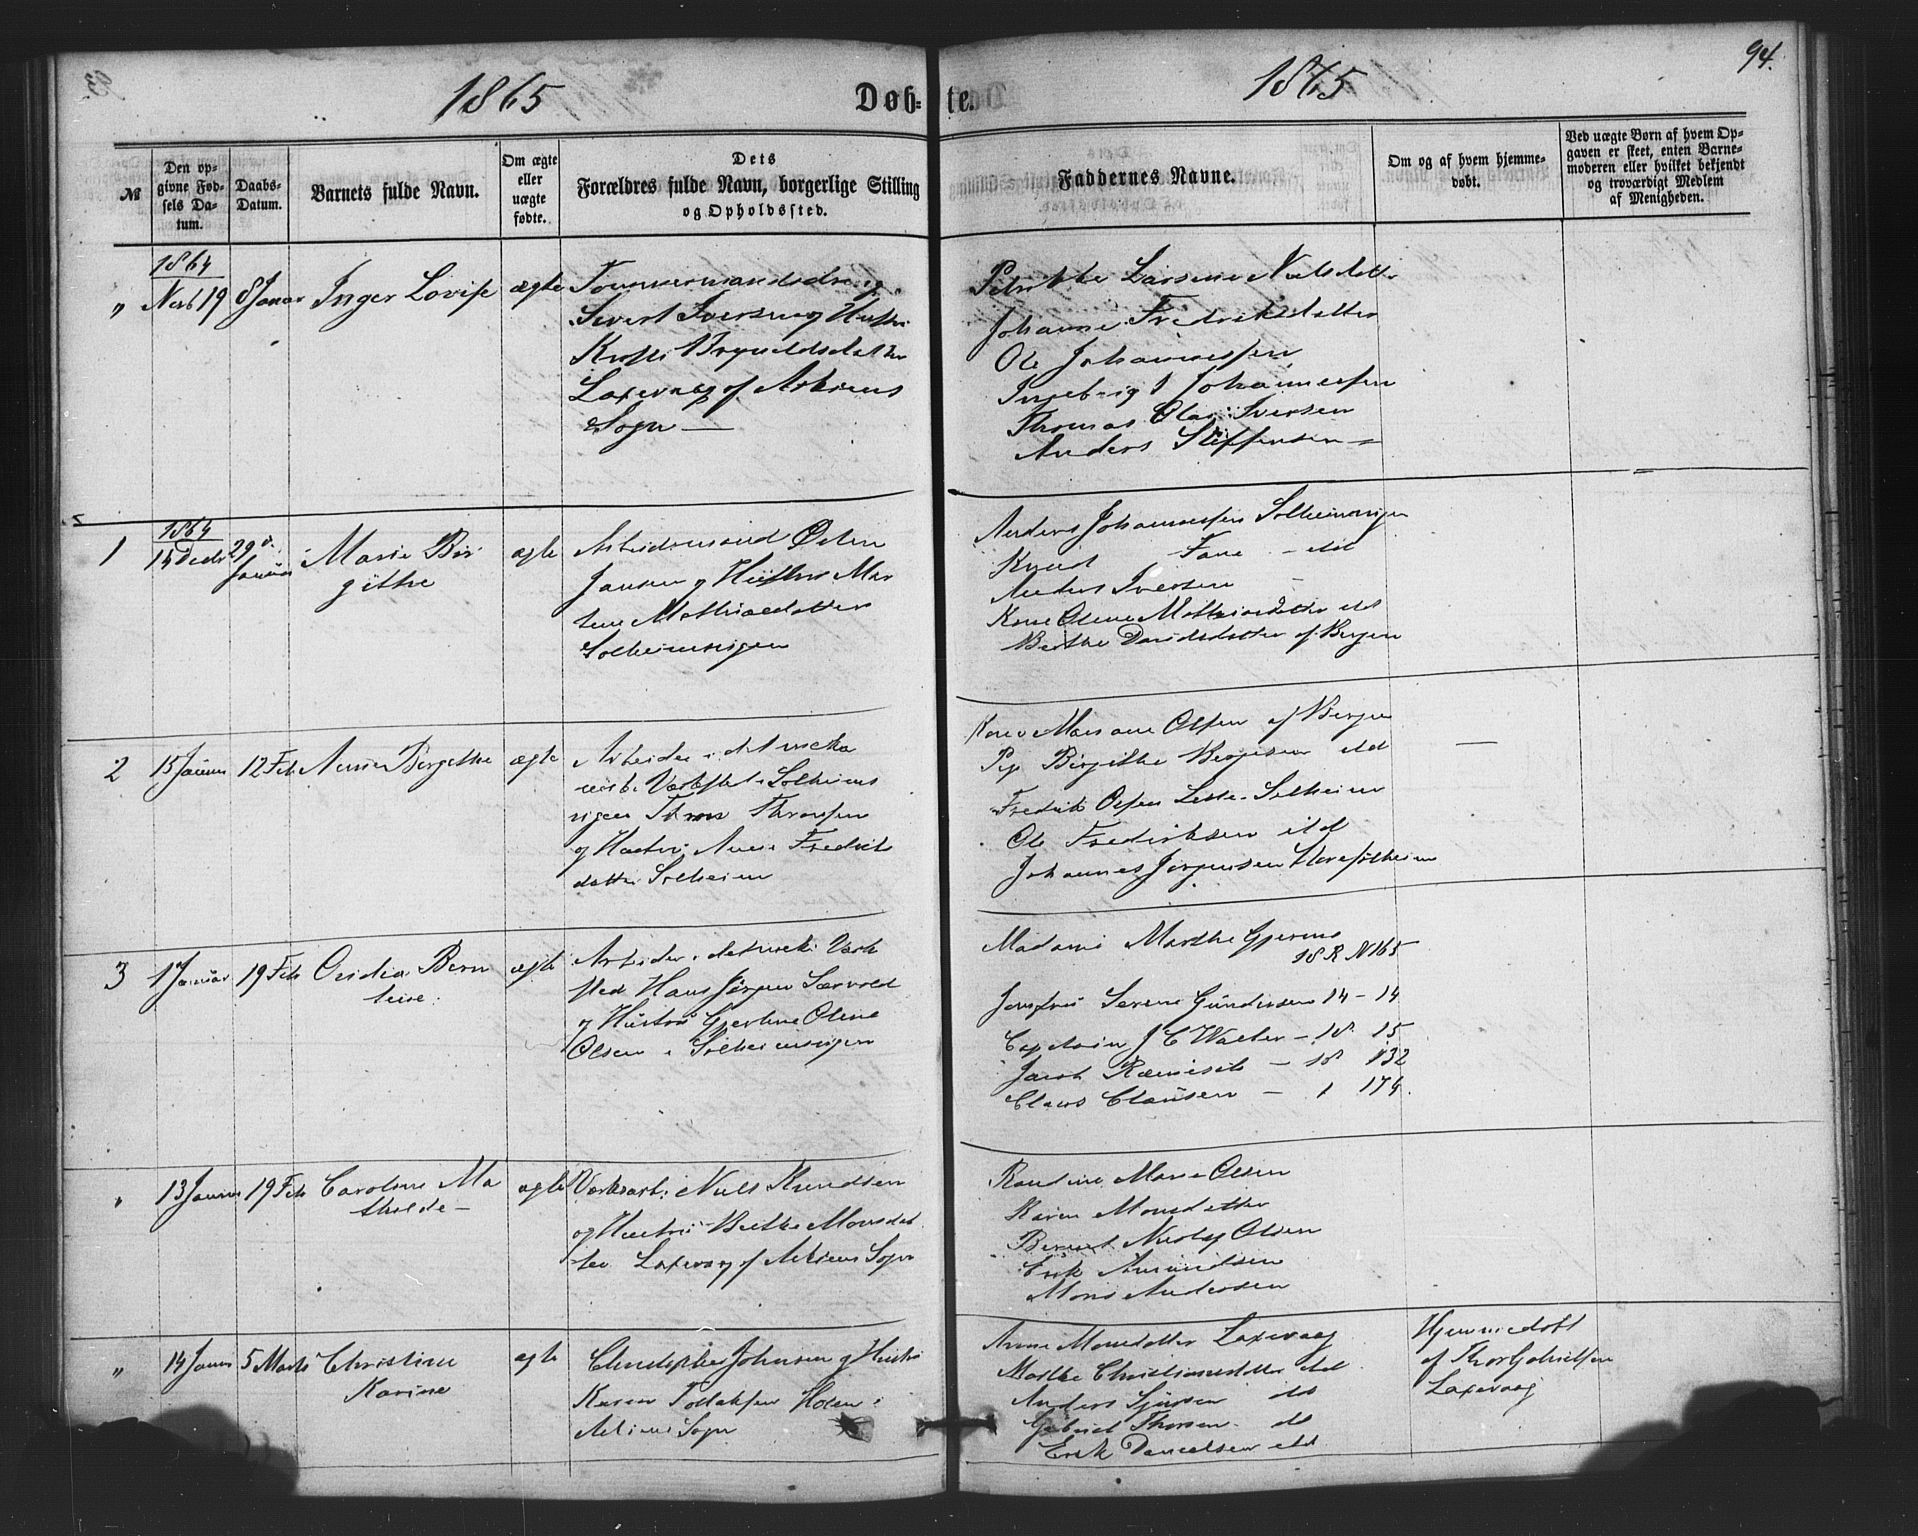 1865
Døb-te.
1865
94.
№
Den op-
givne Fød-
sels Da-
tum.
Daabs-
Datum.
Barnets fulde Navn.
Om ægte
eller
uægte
fødte.
Dets
Forældres fulde Navn, borgerlige Stilling
og Opholdssted.
Faddernes Navne.
Om og af hvem hjemme-
døbt.
Ved uægte Børn af hvem Op-
gaven er skeet, enten Barne-
moderen eller hvilket bekjendt
og troværdigt Medlem
af Menigheden.
1864
" 19 8 Januar Inger Lovise ægte
Sivert Iversen og
Brynildsdatter
Laxevaag af Askøens
Sogn —
Larsine Nielsdatter
Johanne Fredriksdatter
Ole Johannessen
Ingebrigt Johannessen
Thomas Olai Iversen
Anders Steffensen
1
1864
29
Januar
Marie Bir
githe
ægte
Arbeidsmand Østen
Jansen og Hustru Mar
tine Mathiasdatter
Solheimsvigen
Anders Johannessen Solheimsvigen
Knud Fane
Anders Iversen
Kone Olene Mathiasdatter
Berthe Davidsdatter af Bergen
2 15 Januar 12 Feb Anne Birgithe ægte
Arbeider i det mecha
niske Værksted i Solheims
vigen Thron Thronsen
og Hustru Anne Fredriks
datter Solheim
Kone Mariane Olsen af Bergen
Pige Birgithe
Fredrik Olsen Lille Solheim
Ole Frederiksen
Johannes Jørgensen Storesolheim
—
3 1 Januar 19 Feb Ovidia Bern
tine
ægte
Arbeider i det mek: Værk
sted Hans Jørgen Sævold
og Hustru Gjertine Olene
Olsen i Solheimsvigen
Madame Marthe
18 R N 165
Jomfru Serene Gundersen 14 - 14
Captain J C Walter - 18 15
Jacob - 18 132
Claus Clausen - 1 174
" 13 Januar 19 Feb Caroline Ma
thilde -
ægte
Niels Knudsen
og Hustru Berthe Monsdat
ter Laxevaag af Askøens Sogn
Marie Olsen
Karen Monsdatter
Berent Nicolay Olsen
Erik Amundsen
Mons Andersen
" 14 Januar 5 Marts Christine
Karine
ægte
Christopher Johnsen og Hustru
Karen Tollaksen Holen i
Askøens Sogn
Anne Monsdatter Laxevaag
Marthe Christiansdatter
Anders Sjursen
Gabriel Thorsen
Erik Danielsen
Hjemmedøbt
af Thor Gabrielsen
Laxevaag